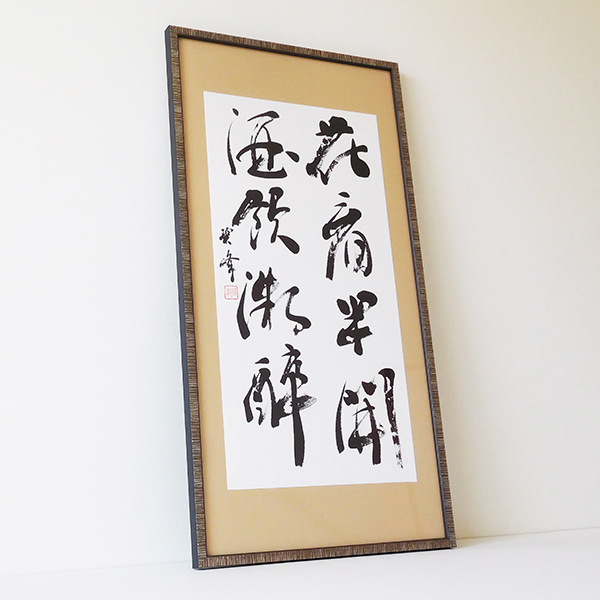 花看半開
酒飲微酔
峰